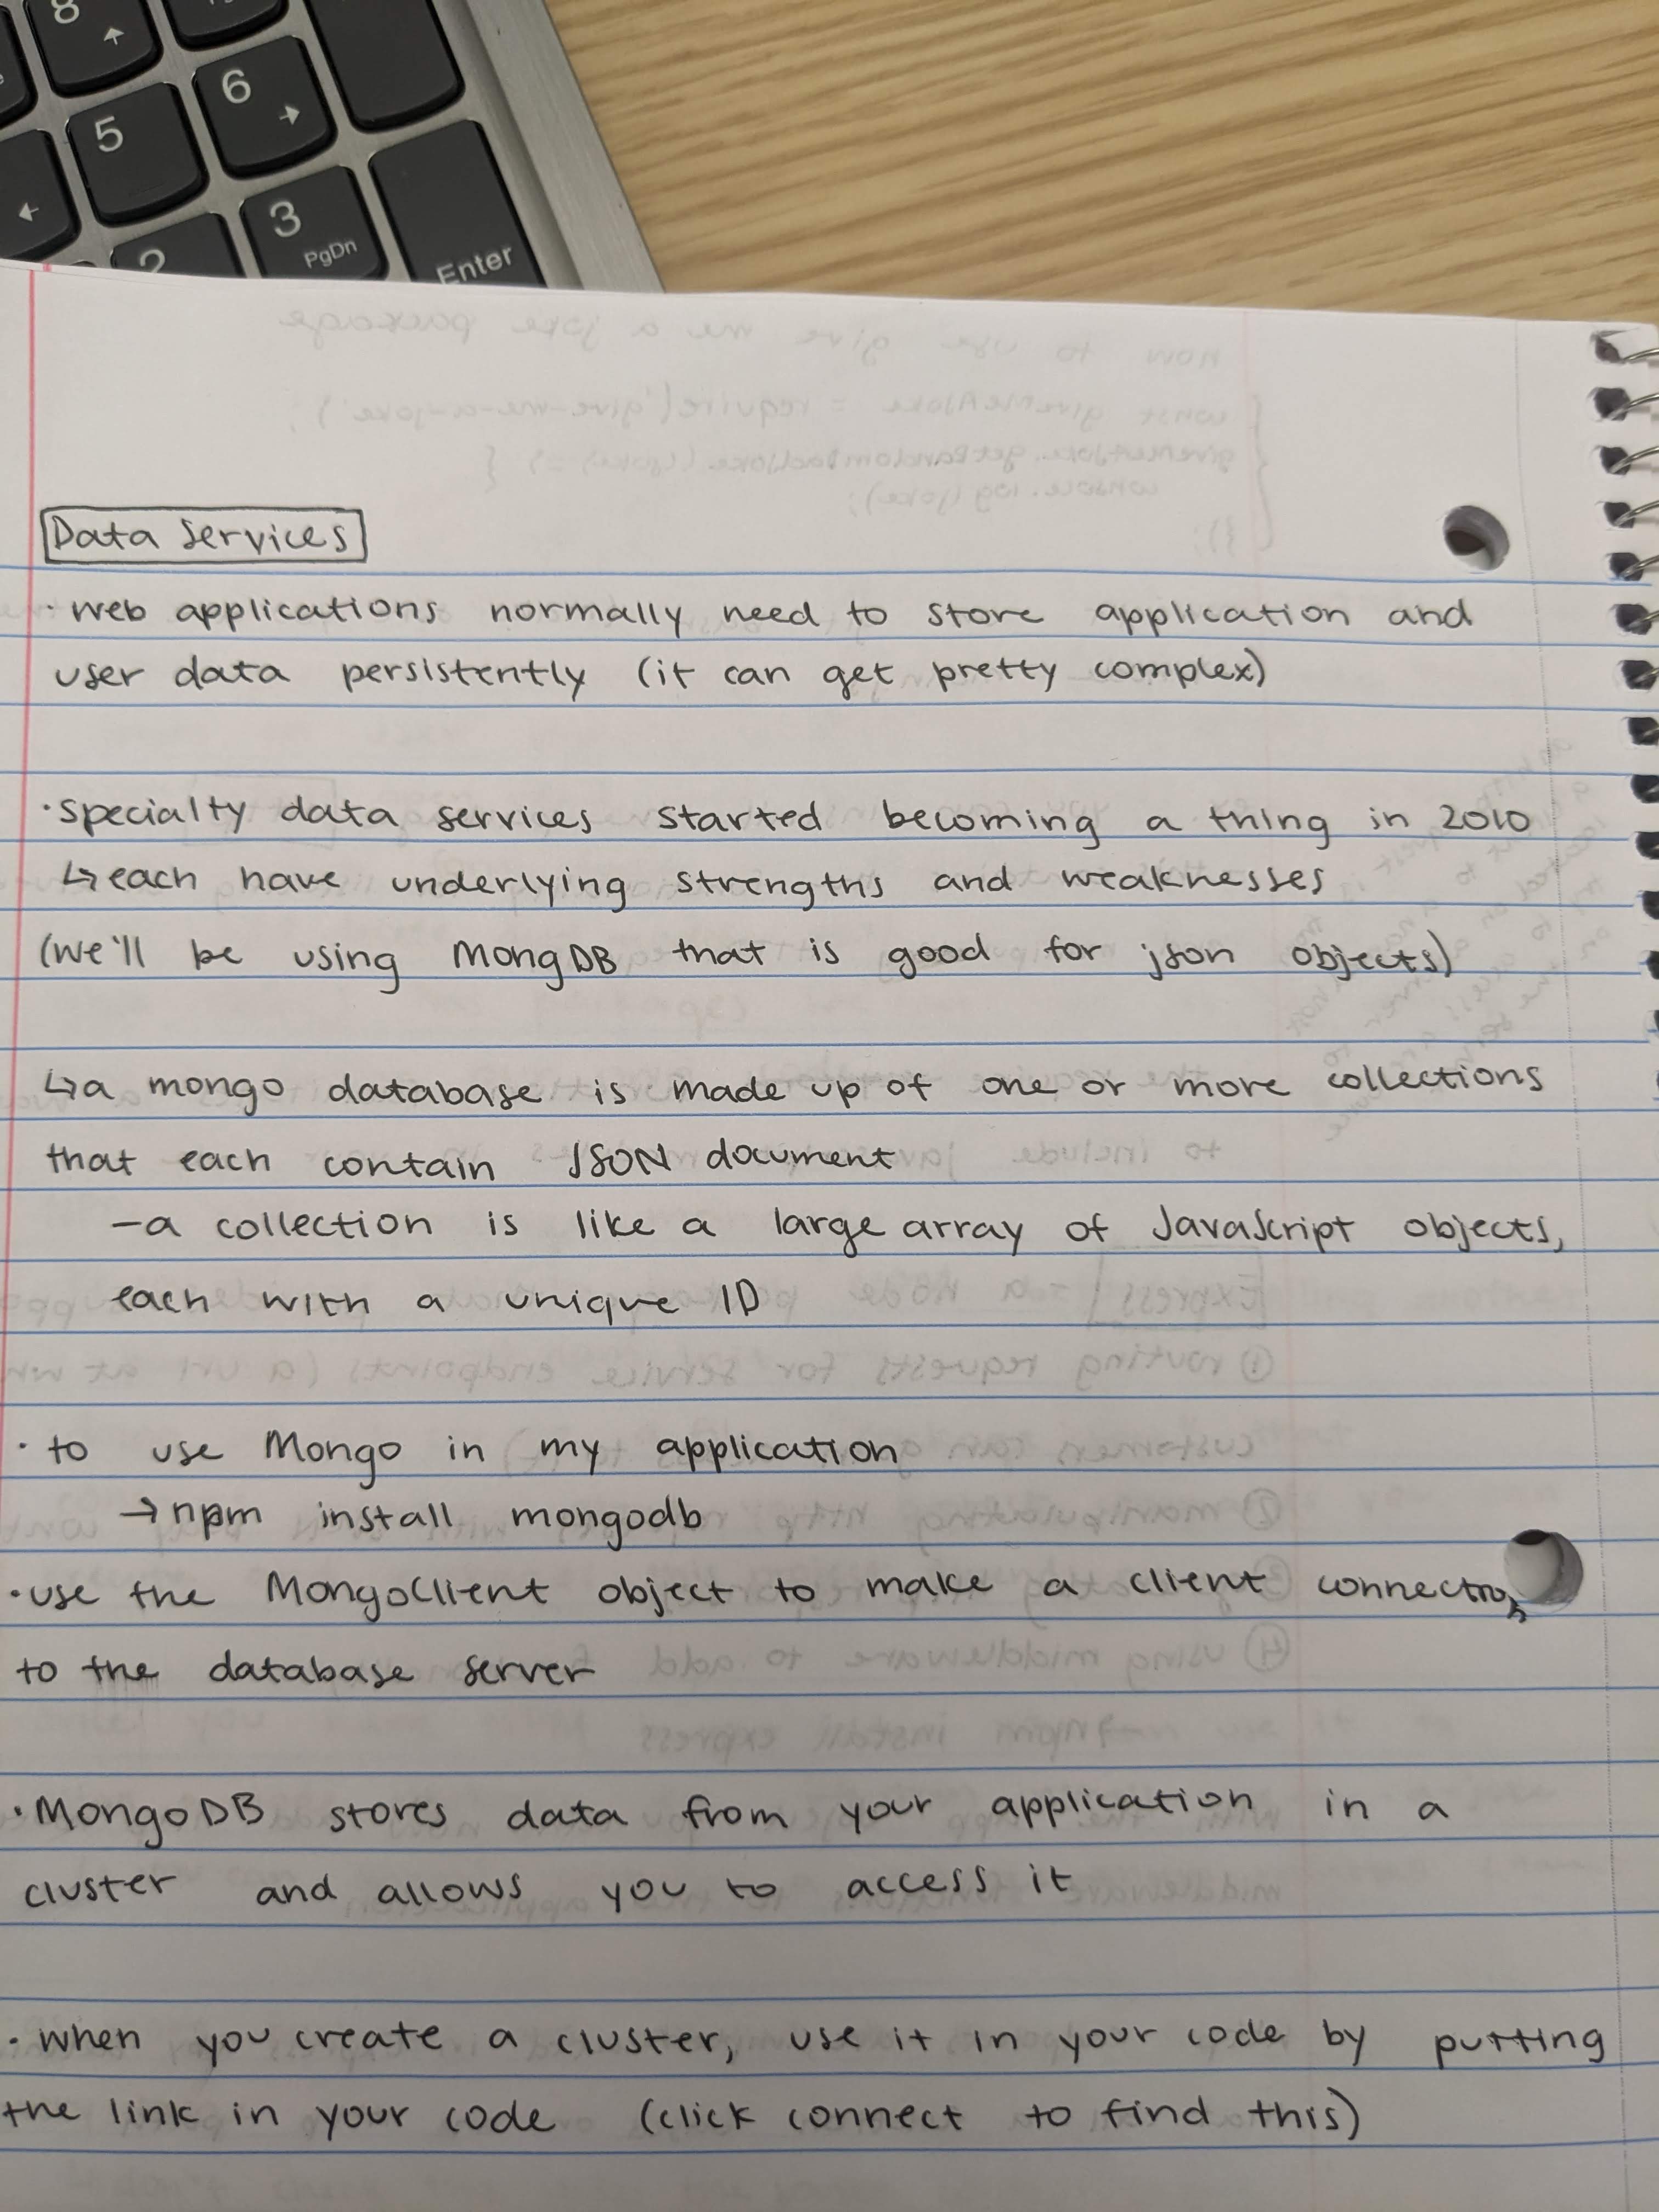 8
6
5
3
PgDn
2
Enter
Data Services
· web applications normally need to store application and
user data persistently (it can get pretty complex)
· specialty data services started becoming a thing in 2010
↳ each have underlying strengths and weaknesses
(we'll be using MongDB that is good for json objects)
↳ a mongo database is made up of one or more collections
that each contain JSON document
– a collection is like a large array of JavaScript objects,
each with a unique ID
· to use Mongo in my application
→ npm install mongodb
· use the MongoClient object to make a client connection
to the database server
· MongoDB stores data from your application in a
cluster and allows you to access it
· when you create a cluster, use it in your code by putting
the link in your code (click connect to find this)